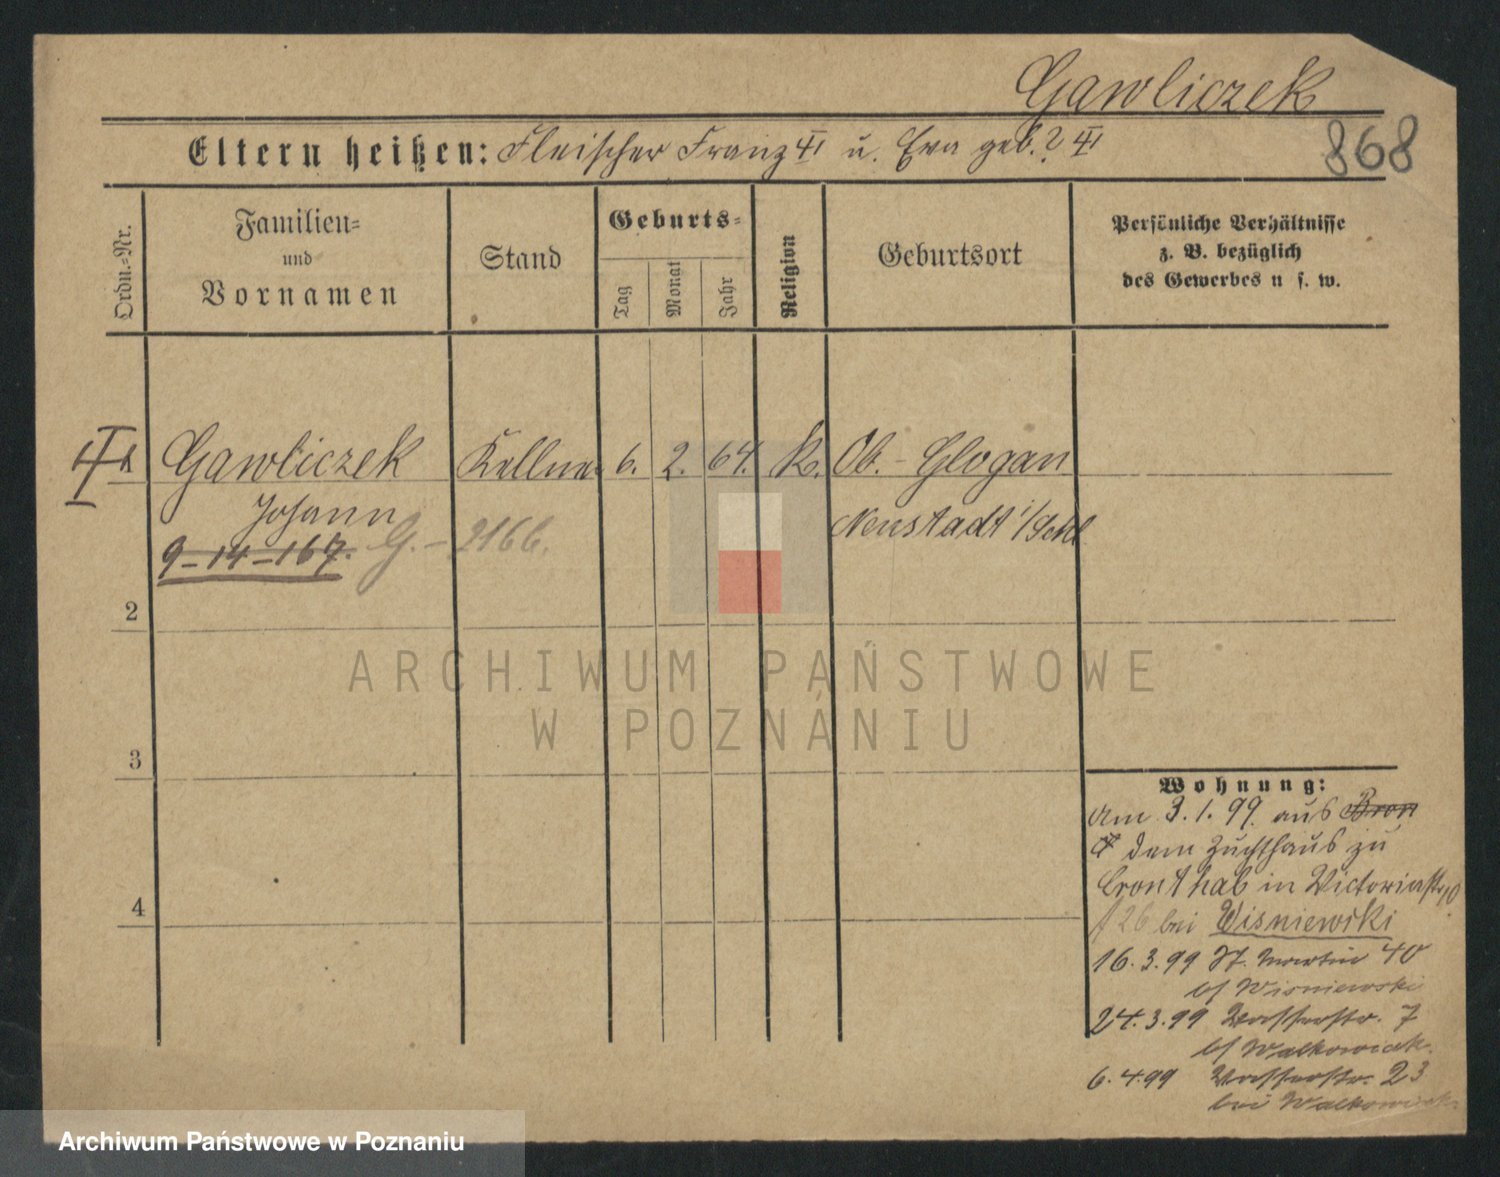 Gawliczek
868
Eltern heißen: Fleischer Franz u. Eva geb. ?
Ordn.-Nr.
Familien-
und
Vornamen
Stand
Geburts-
Tag
Monat
Jahr
Religion
Geburtsort
Persönliche Verhältnisse
z. B. bezüglich
des Gewerbes u s. w.
1 Gawliczek Kellner 6. 2. 64. k. Ob.-Glogau
Johann
Neustadt i/Schl.
9-14-167. G.-2166.
2
3
4
Wohnung:
Am 3.1.99. aus Bron
dem Zuchthaus zu
Cronthal in Victoriastr 10
26 bei Wisniewski
16.3.99 St. Martin 40
b/ Wisniewski
24.3.99 Wasserstr. 7
b/ Walkowiak.
6.4.99 Wasserstr. 23
bei Walkowiak
ARCHIWUM PAŃSTWOWE
W POZNANIU
Archiwum Państwowe w Poznaniu